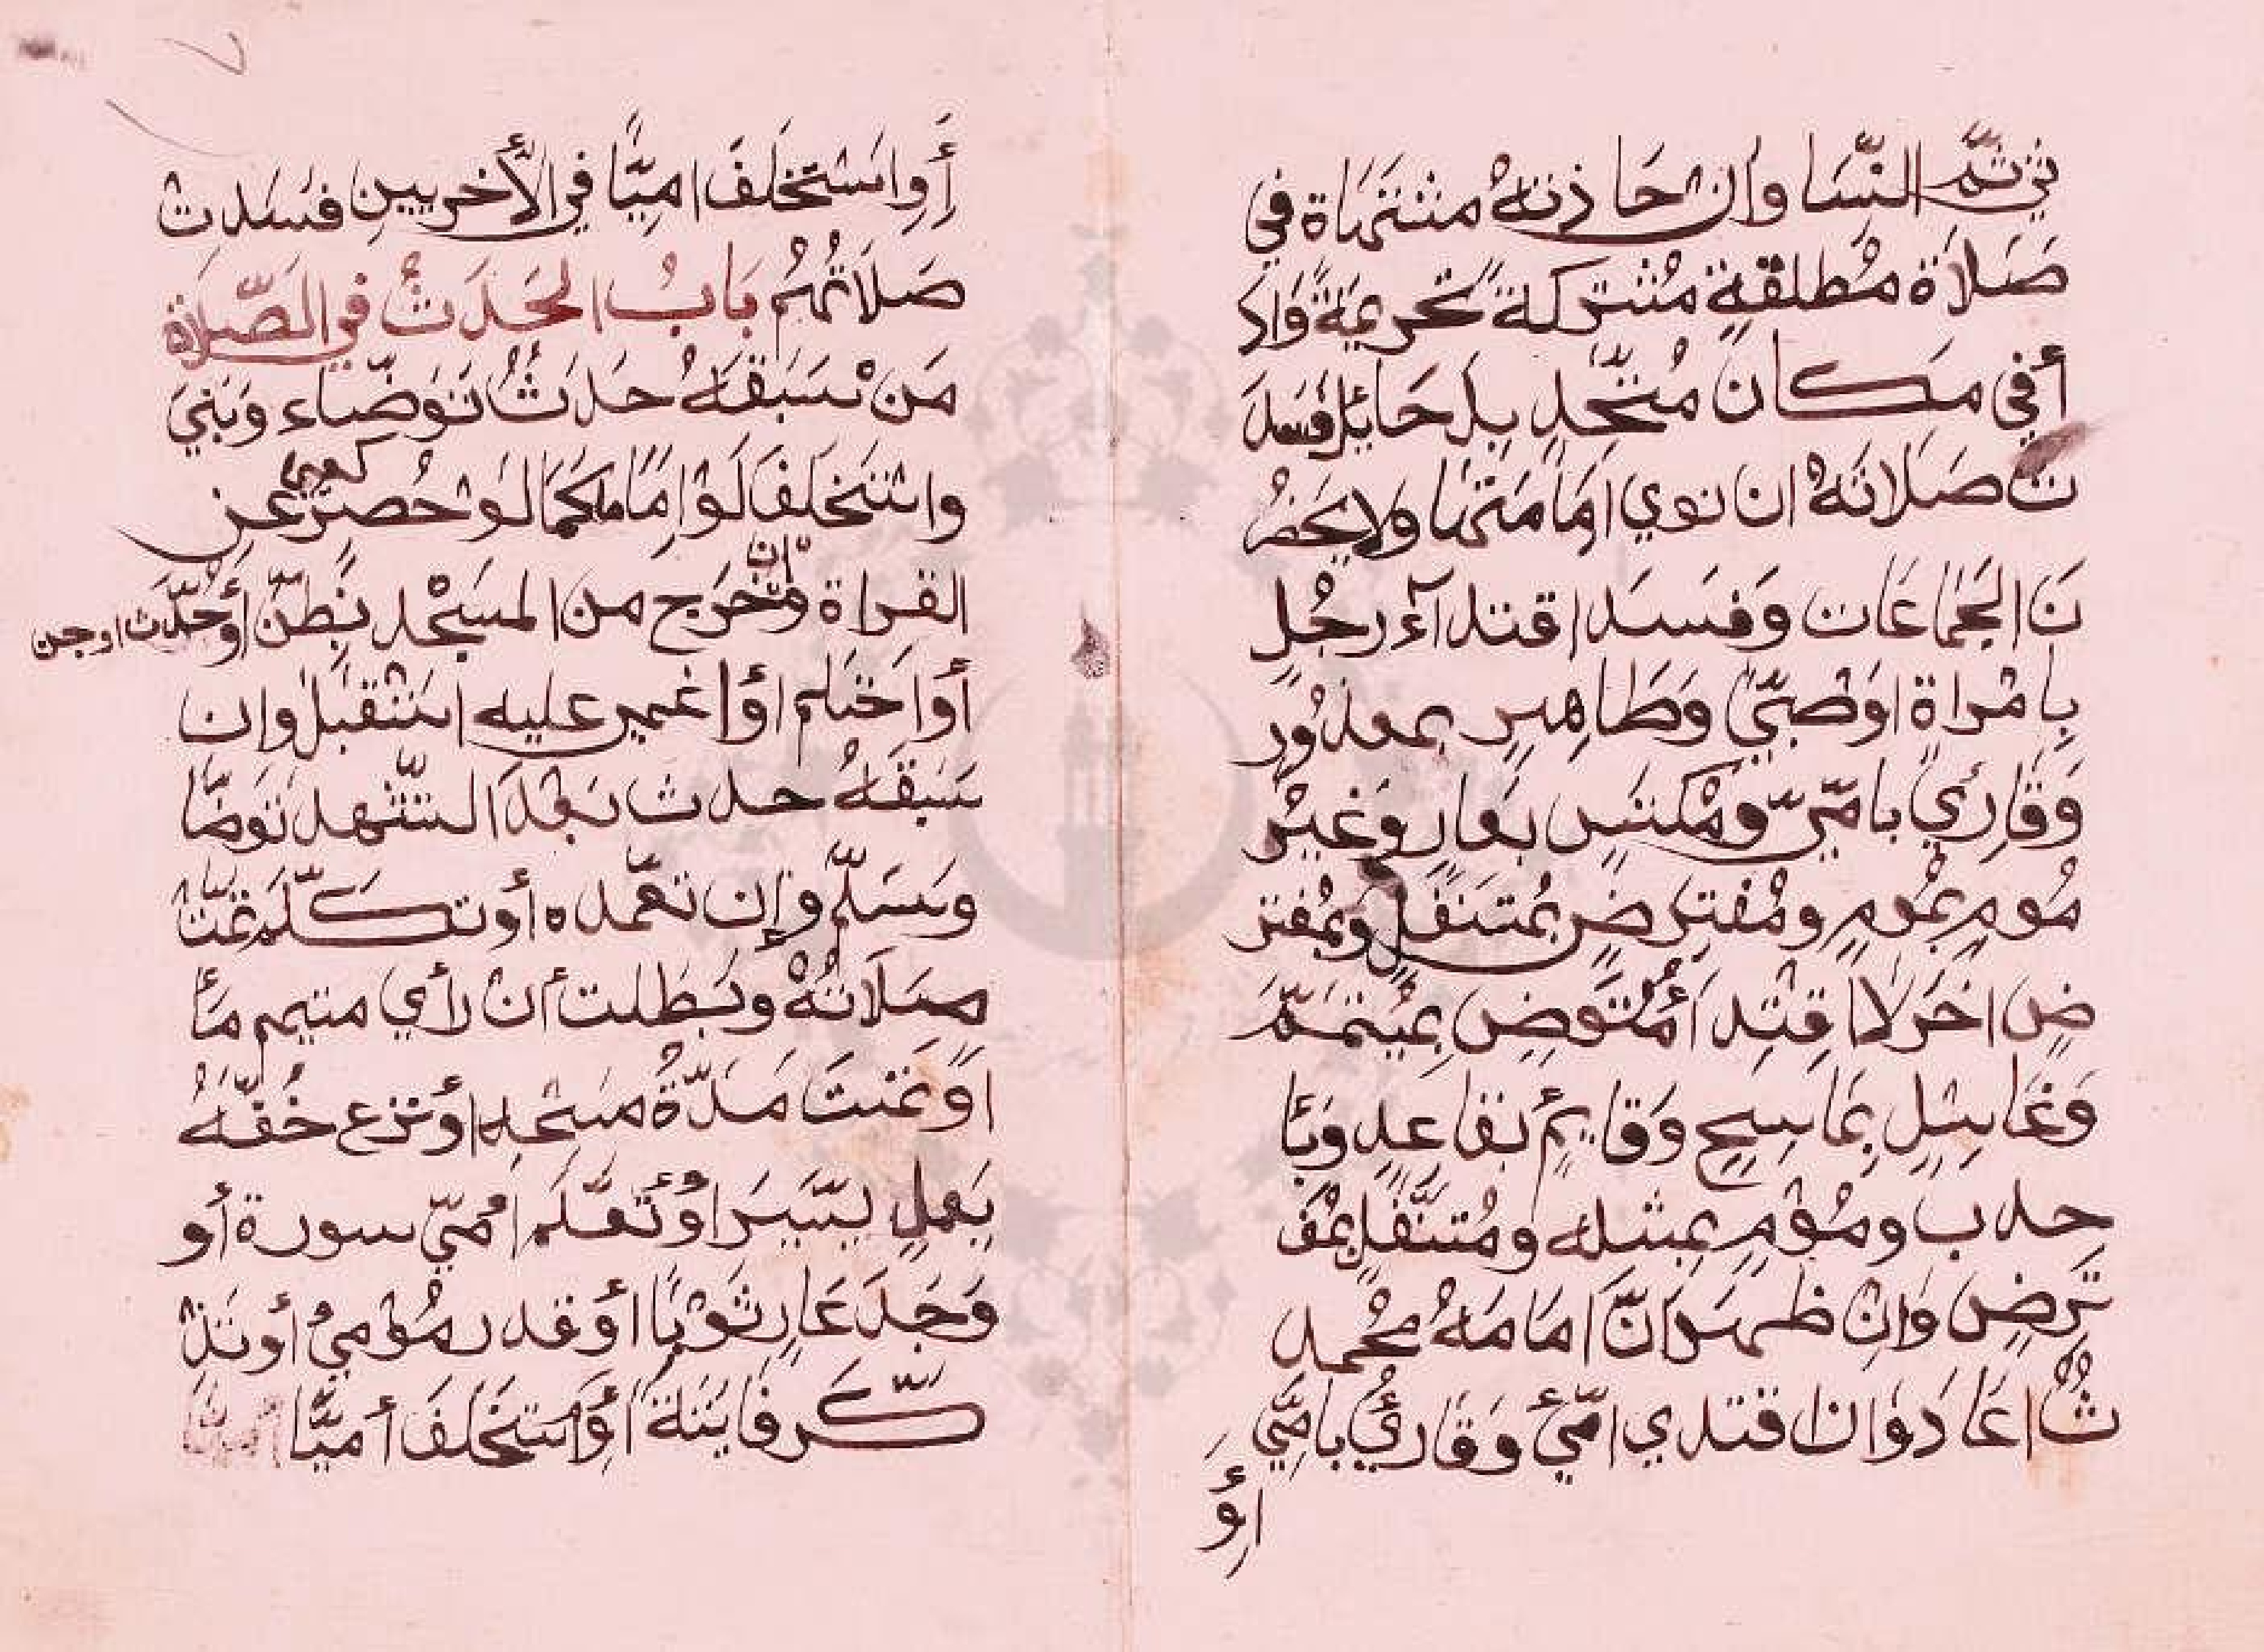 ثي ثمّ النّسا وان حاذته مشتهاة في
صَلاة مُطلقةٍ مُشتركة تحريمةً وَادَ
أفي مكان مُتّحدٍ بلا حَائل فسد
ت صَلاتَهُ ان نوي امامتها ولا يحضر
نَ الجماعات وَفسَد اقتداآء رجُلٍ
بامْراة اوْصبيّ وَطَاهِرٍ بمعذُور
وَقَارِئ بامّيّ ومُكتسٍ بعارٍ وَغيرُ
مُومٍ بمُومٍ ومُفترضٍ بمُتنفّلٍ وَبمُفتر
ضٍ اخَر لا اقتِدَأ مُتَوضٍ بمُتيَمّمٍ
وَغاسِلٍ بمَاسِحٍ وَقايمٌ بقاعدٍ وَبَأ
حدب ومُؤمٍ بمثله ومُتنَفّلٍ بمُف
تَرِضٍ وَانْ ظهَرَ انَّ امامَهُ مُحمد
ثُ اعَادَ وَان اقتدي امّيّ وَقَارئٌ بامّيٍّ
اوِ
أَوِ اسْتخلَفَ امِيًّا في الأخريين فسَدتْ
صَلَاتُهُم بَابُ الحَدَثُ في الصَّلَاة
مَن سَبَقهُ حدَثٌ تَوَضّاء وَبَنيَ
واستَخلفَ لَوْ امَاما كما لوْ حُصِرَ عن
القراة وان خرَج من المسجد بَظنّ أوحَدّث اوجن
أوَاحتلم اوْ اغمي عليه استقبَل وان
سَبَقهُ حدث بعْدَ التشهد تَوَضّا
وَسَلّم وإن تعمّده أو تكلّم تمّتْ
صَلَاتُهْ وبَطَلت أنْ رأي متيمم مَأ
اوَ تمتَ مَدّةُ مسْحهِ اوْنزع خُفّهُ
بعملٍ يسيرٍ اوْ تعَلّم امّيّ سورة أو
وَجَدَ عَارٍ ثوْبًا اوْ قدر مُؤميٌ أو تَذ
كّر فايتةً اوِ استَخلفَ أميًّا